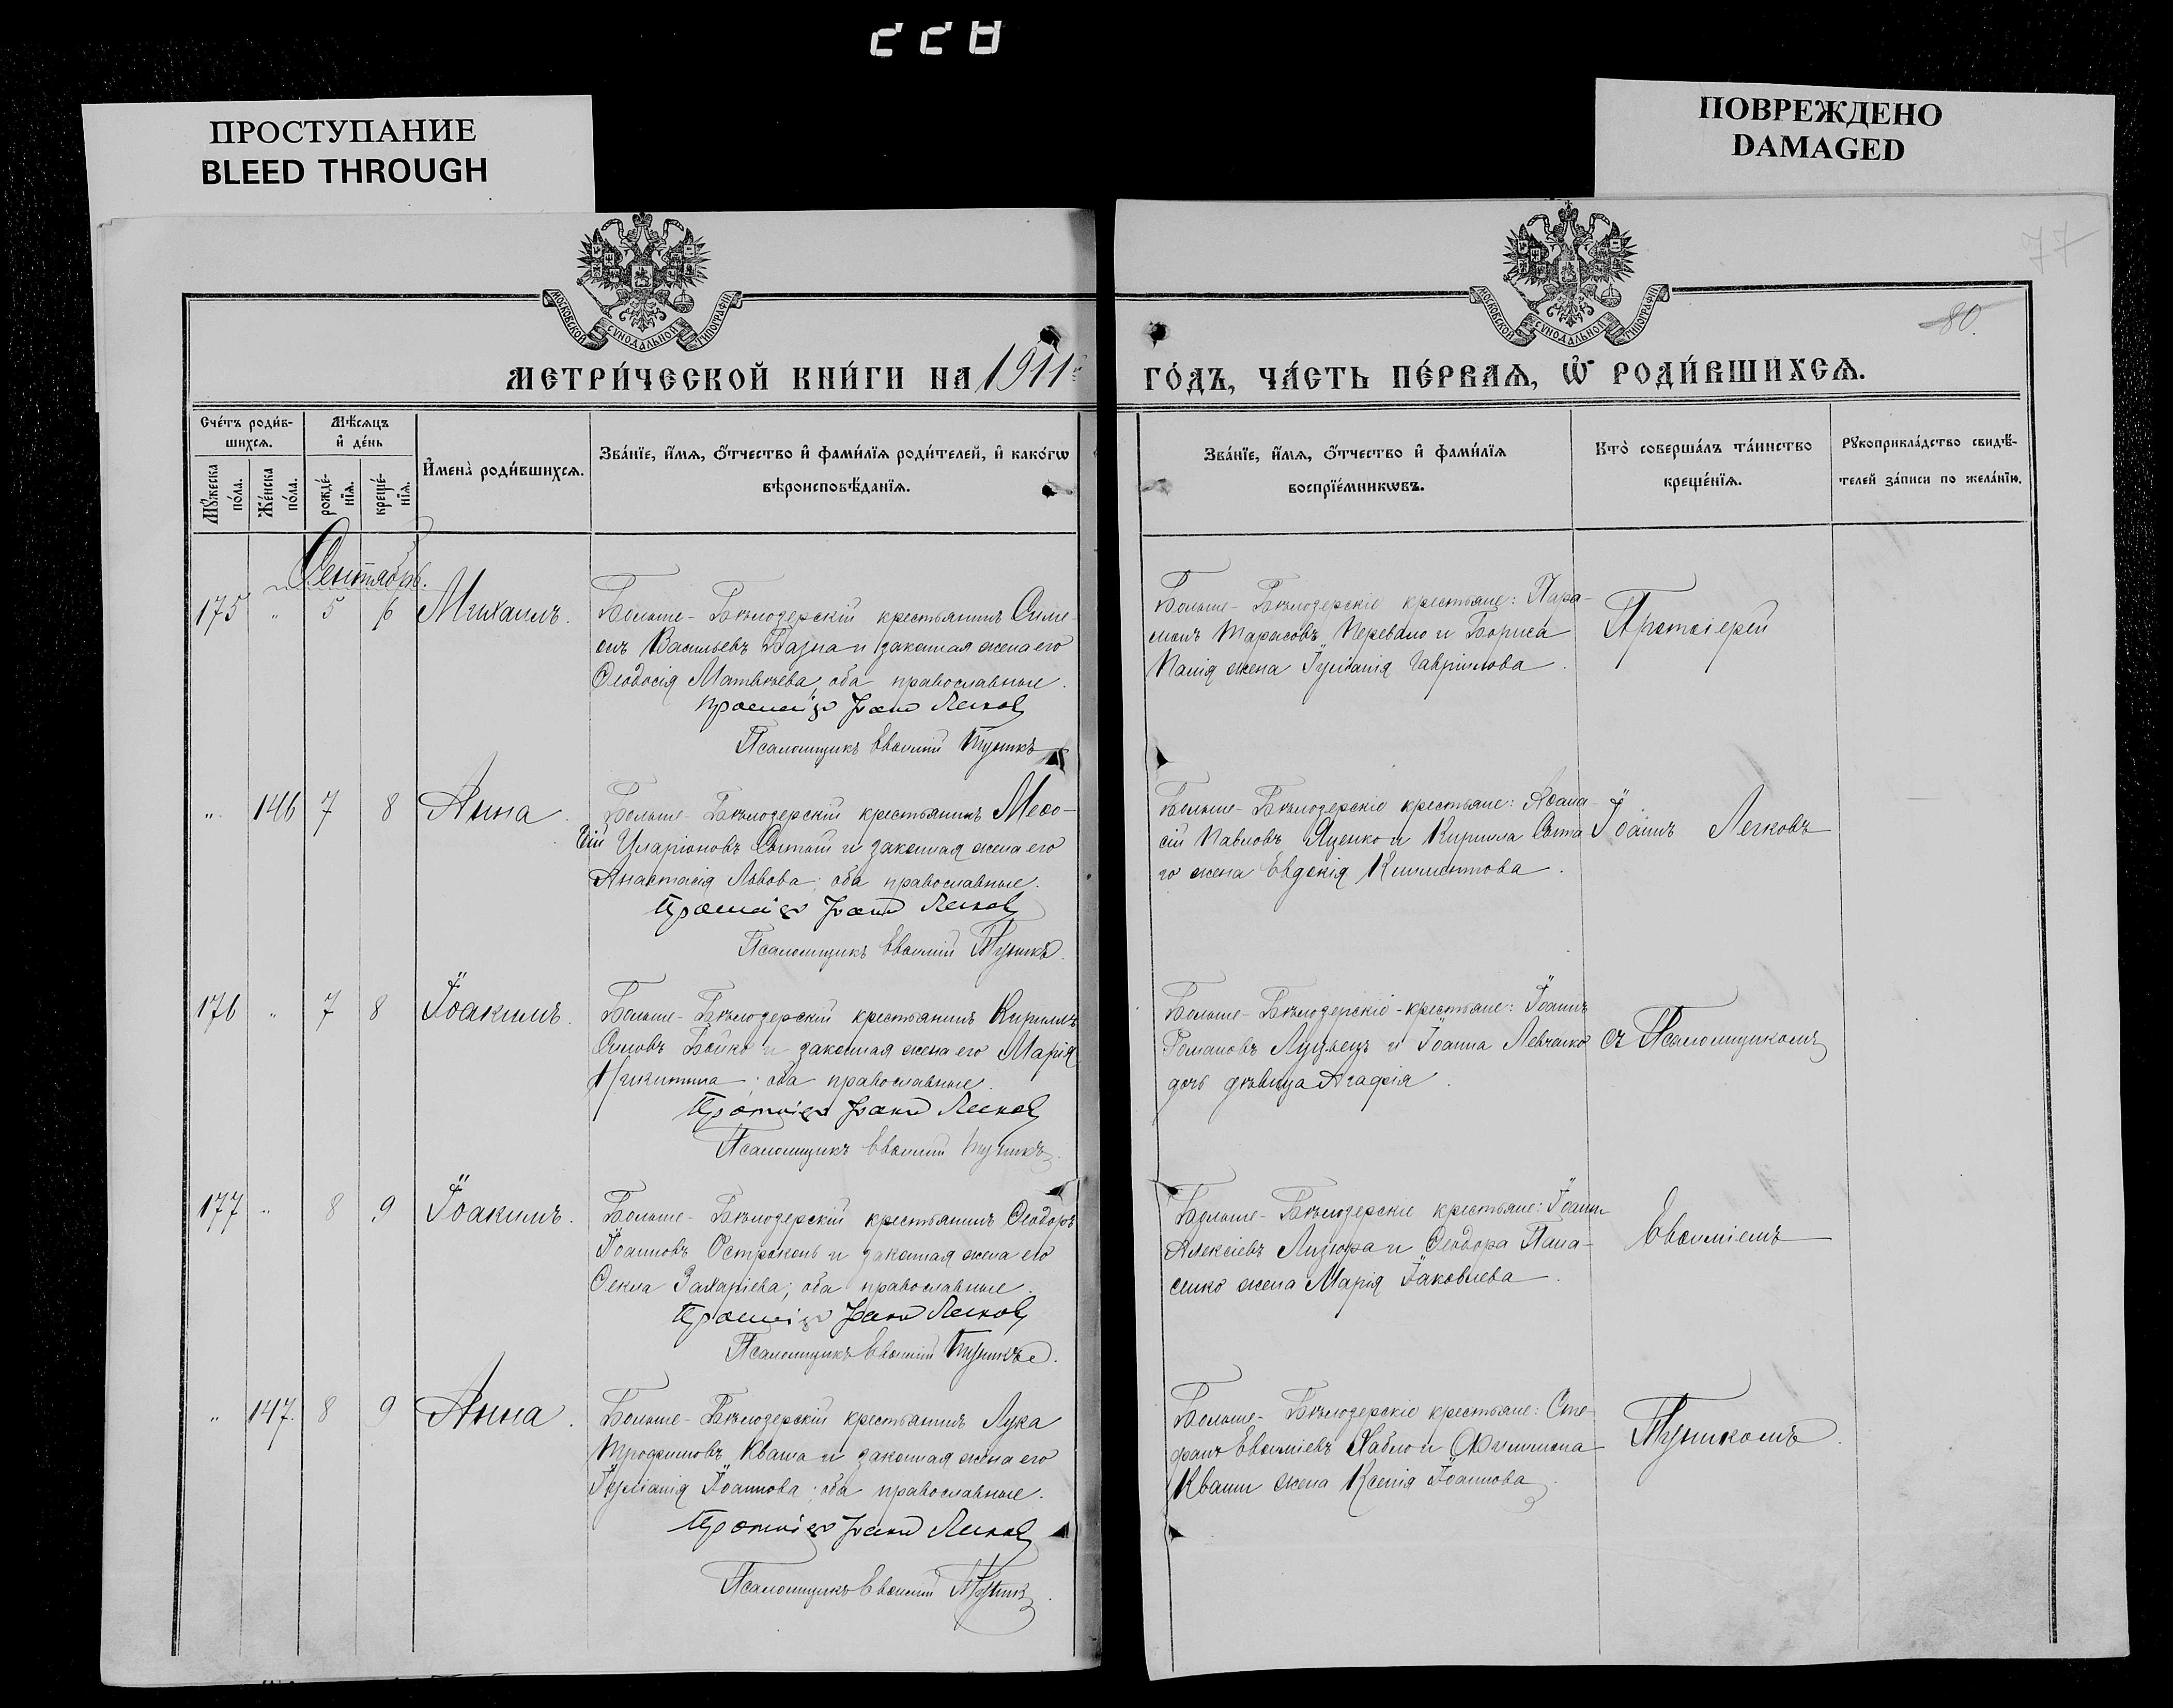 ПРОСТУПАНИЕ
BLEED THROUGH
ПОВРЕЖДЕНО
DAMAGED
77
80
МОСКОВСКОЙ СѴНОДАЛЬНОЙ ТИПОГРАФІИ
МОСКОВСКОЙ СѴНОДАЛЬНОЙ ТИПОГРАФІИ
МЕТРИ́ЧЕСКОЙ КНИ́ГИ НА 1911
ГО́ДЪ, ЧА́СТЬ ПЕ́РВАѦ, Ѡ҆ РОДИ́ВШИХСѦ.
Сче́тъ роди́в-
шихсѧ.
Мꙋжеска по́ла.
Же́нска по́ла.
Мѣ́сѧцъ
и҆ де́нь
рожде́-
нїѧ.
креще́-
нїѧ.
И҆мена̀ роди́вшихсѧ.
Зва́нїе, и҆́мѧ, ѻ҆́тчество и҆ фами́лїѧ роди́телей, и҆ како́гѡ
вѣроисповѣ́данїѧ.
Зва́нїе, и҆́мѧ, ѻ҆́тчество и҆ фами́лїѧ
воспрїе́мникѡвъ.
Кто̀ соверша́лъ та́инство
креще́нїѧ.
Рꙋкоприкла́дство свидѣ́-
телей за́писи по жела́нїю.
Сентябрь.
175 " 5 6 Михаилъ.
Больше-Бѣлозерскій крестьянинъ Симе-
онъ Васильевъ Базна и законная жена его
Ѳеодосія Матвѣева, оба православные.
Протоіер Іоаннъ Легковъ
Псаломщикъ Евѳимій Тушкъ
Больше-Бѣлозерскіе крестьяне: Пара-
монъ Тарасовъ Перевало и Бориса
Панія жена Іуліанія Гавріилова.
Протоіерей
" 146 7 8 Анна.
Больше-Бѣлозерскій крестьянинъ Меѳо-
дій Иларіоновъ Сытый и законная жена его
Анастасія Львова; оба православные.
Протоіер Іоаннъ Легковъ
Псаломщикъ Евѳимій Тушкъ.
Больше-Бѣлозерскіе крестьяне: Аѳана-
сій Павловъ Яценко и Кирилла Сыта
го жена Евдокія Климентова.
Іоаннъ Легковъ
176 " 7 8 Іоакимъ.
Больше-Бѣлозерскій крестьянинъ Кириллъ
Симовъ Бойко и законная жена его Марія
Никитина; оба православные.
Протоіер Іоаннъ Легковъ
Псаломщикъ Евѳимій Тушкъ.
Больше-Бѣлозерскіе крестьяне: Іоаннъ
Романовъ Луцьецъ и Іоанна Левченко
дочь дѣвица Агафія.
съ Псаломщикомъ
177 " 8 9 Іоакимъ.
Больше-Бѣлозерскій крестьянинъ Ѳеодоръ
Іоанновъ Остроконь и законная жена его
Ѳекла Захаріева; оба православные.
Протоіер Іоаннъ Легковъ
Псаломщикъ Евѳимій Тушкъ.
Больше-Бѣлозерскіе крестьяне: Іоаннъ
Алексіевъ Лизюра и Ѳеодора Пана-
сенко жена Марія Іаковлева.
Евѳиміемъ
" 147. 8 9 Анна.
Больше-Бѣлозерскій крестьянинъ Лука
Трофимовъ Кваша и законная жена его
Іуліанія Іоаннова; оба православные.
Протоіер Іоаннъ Легковъ
Псаломщикъ Евѳимій Тушкъ.
Больше-Бѣлозерскіе крестьяне: Сте-
фанъ Евѳиміевъ Хабло и Филимона
Кваши жена Ксенія Іоаннова.
Тушкомъ.